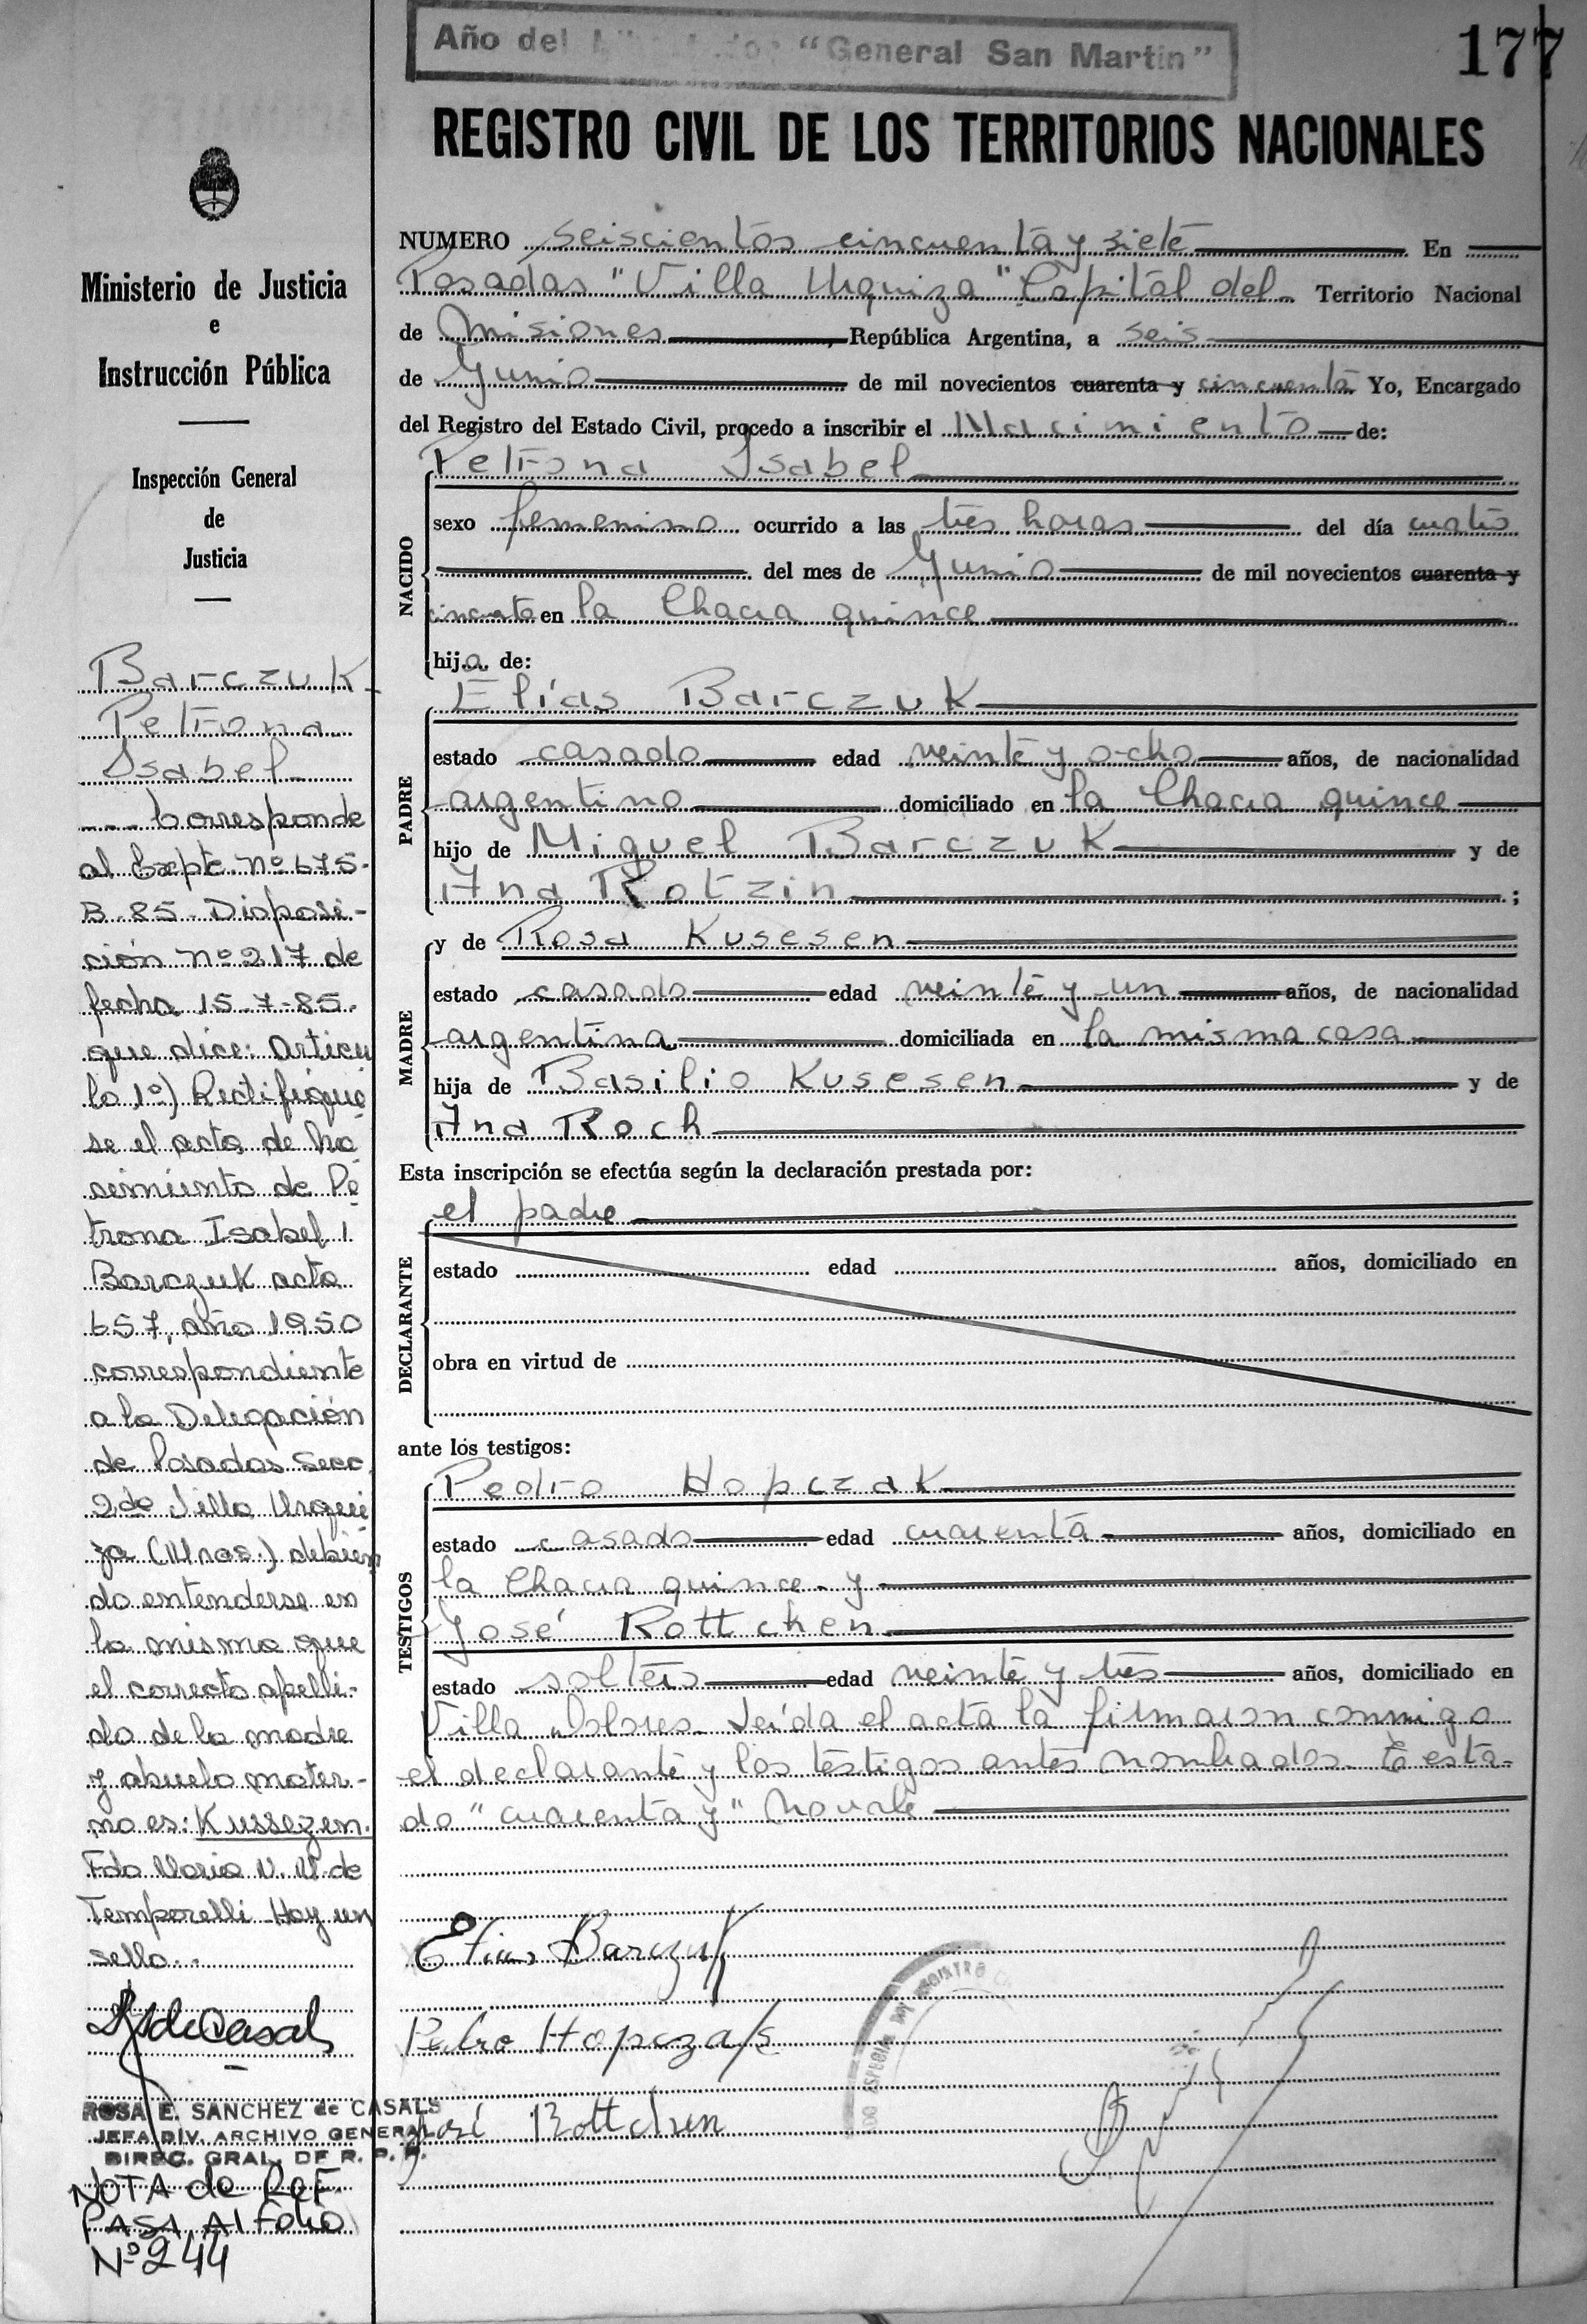 Año del "General San Martín"
177
REGISTRO CIVIL DE LOS TERRITORIOS NACIONALES
Ministerio de Justicia
e
Instrucción Pública
Inspección General
de
Justicia
Barczuk
Petrona
Isabel
Corresponde
al Expte. Nº 675-
B-85- Disposi-
ción Nº 217 de
fecha 15-7-85-
que dice: Artícu
lo 1º) Rectifíque
se el acta de Na
cimiento de Pe
trona Isabel
Barczuk acta
657, año 1950
correspondiente
a la Delegación
de Posadas Secc
2da Villa Urqui
za (Mnes.) debien
do entenderse en
la misma que
el correcto apelli-
do de la madre
y abuelo mater-
no es: Kussezen.
Fdo María V. M. de
Temporelli Hay un
sello..
RSdeCasals
ROSA E. SANCHEZ de CASALS
JEFA DIV. ARCHIVO GENERAL
DIREC. GRAL. DE R. P. P.
NOTA de REF.
PASA Al Folio
Nº 244
NUMERO seiscientos cincuenta y siete En
Posadas "Villa Urquiza" Capital del Territorio Nacional
de Misiones, República Argentina, a seis
de Junio de mil novecientos cuarenta y cincuenta Yo, Encargado
del Registro del Estado Civil, procedo a inscribir el Nacimiento de:
NACIDO
Petrona Isabel
sexo femenino ocurrido a las tres horas del día cuatro
del mes de Junio de mil novecientos cuarenta y
cincuenta en la Chacra quince
hija de:
PADRE
Elías Barczuk
estado casado edad veinte y ocho años, de nacionalidad
argentino domiciliado en la Chacra quince
hijo de Miguel Barczuk y de
Ana Rotzin ;
MADRE
y de Rosa Kusesen
estado casada edad veinte y un años, de nacionalidad
argentina domiciliada en la misma casa
hija de Basilio Kusesen y de
Ana Roch
Esta inscripción se efectúa según la declaración prestada por:
DECLARANTE
el padre
estado edad años, domiciliado en
obra en virtud de
ante los testigos:
TESTIGOS
Pedro Hopczak
estado casado edad cuarenta años, domiciliado en
la Chacra quince y
José Rottchen
estado soltero edad veinte y tres años, domiciliado en
Villa Dolores. Leída el acta la firmaron conmigo
el declarante y los testigos antes nombrados. Testa-
do "cuarenta y" No vale
Elias Barczuk
Pedro Hopczak
José Rottchen
ESPECIAL DEL REGISTRO